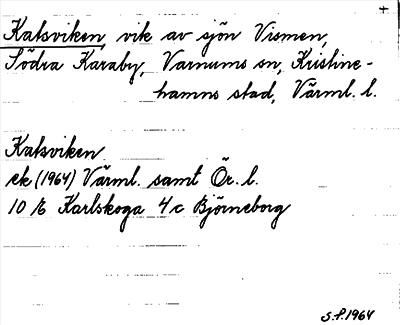 +
Katsviken, vik av sjön Vismen,
Södra Karaby, Varnums sn, Kristine-
hamns stad, Värml. l.
Katsviken
ek (1964) Värml. samt Ör. l.
10 E Karlskoga 4 c Björneborg
S.P. 1964